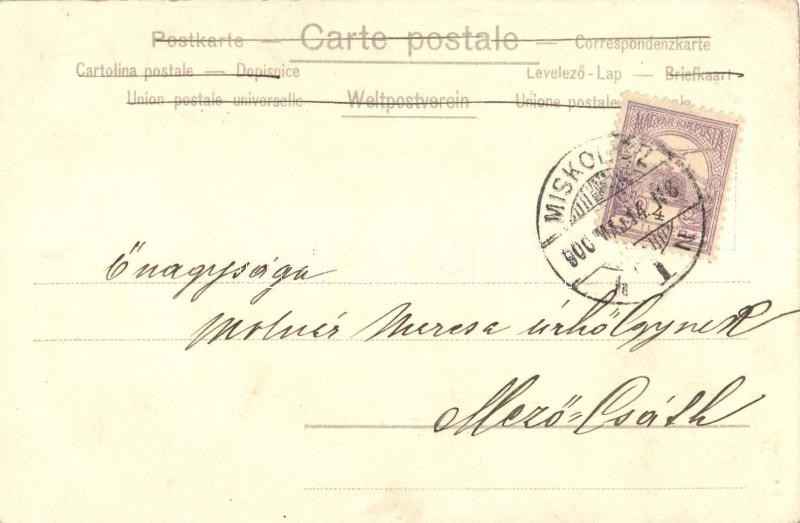 Postkarte — Carte postale — Correspondenzkarte
Cartolina postale — Dopisnice Levelező-Lap — Briefkaart
Union postale universelle Weltpostverein Unione postale
MAGYAR KIR. POSTA
MISKOLCZ
900
Őnagysága
Molnár Mercsa úrhölgynek
Mező=Csáth